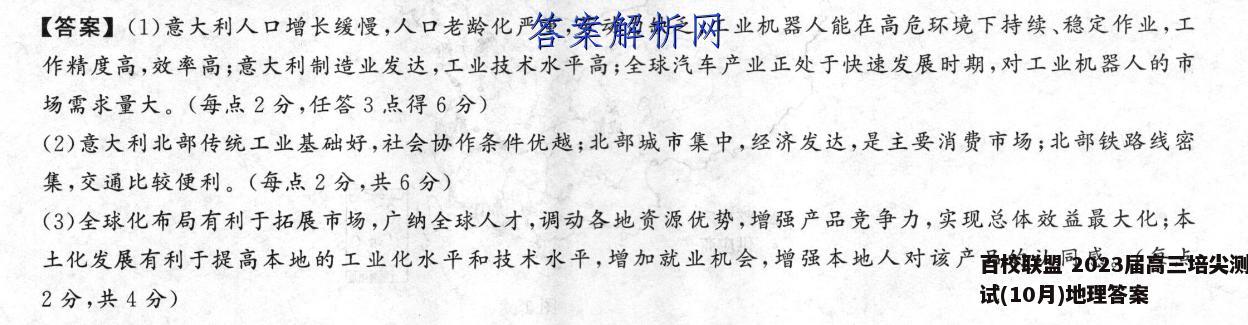 【答案】(1)意大利人口增长缓慢,人口老龄化严 业机器人能在高危环境下持续、稳定作业,工
答案解析网
作精度高,效率高;意大利制造业发达,工业技术水平高;全球汽车产业正处于快速发展时期,对工业机器人的市
场需求量大。(每点2分,任答3点得6分)
(2)意大利北部传统工业基础好,社会协作条件优越;北部城市集中,经济发达,是主要消费市场;北部铁路线密
集,交通比较便利。(每点2分,共6分)
(3)全球化布局有利于拓展市场,广纳全球人才,调动各地资源优势,增强产品竞争力,实现总体效益最大化;本
土化发展有利于提高本地的工业化水平和技术水平,增加就业机会,增强本地人对该产
百校联盟 2023届高三培尖测
试(10月)地理答案
2分,共4分)